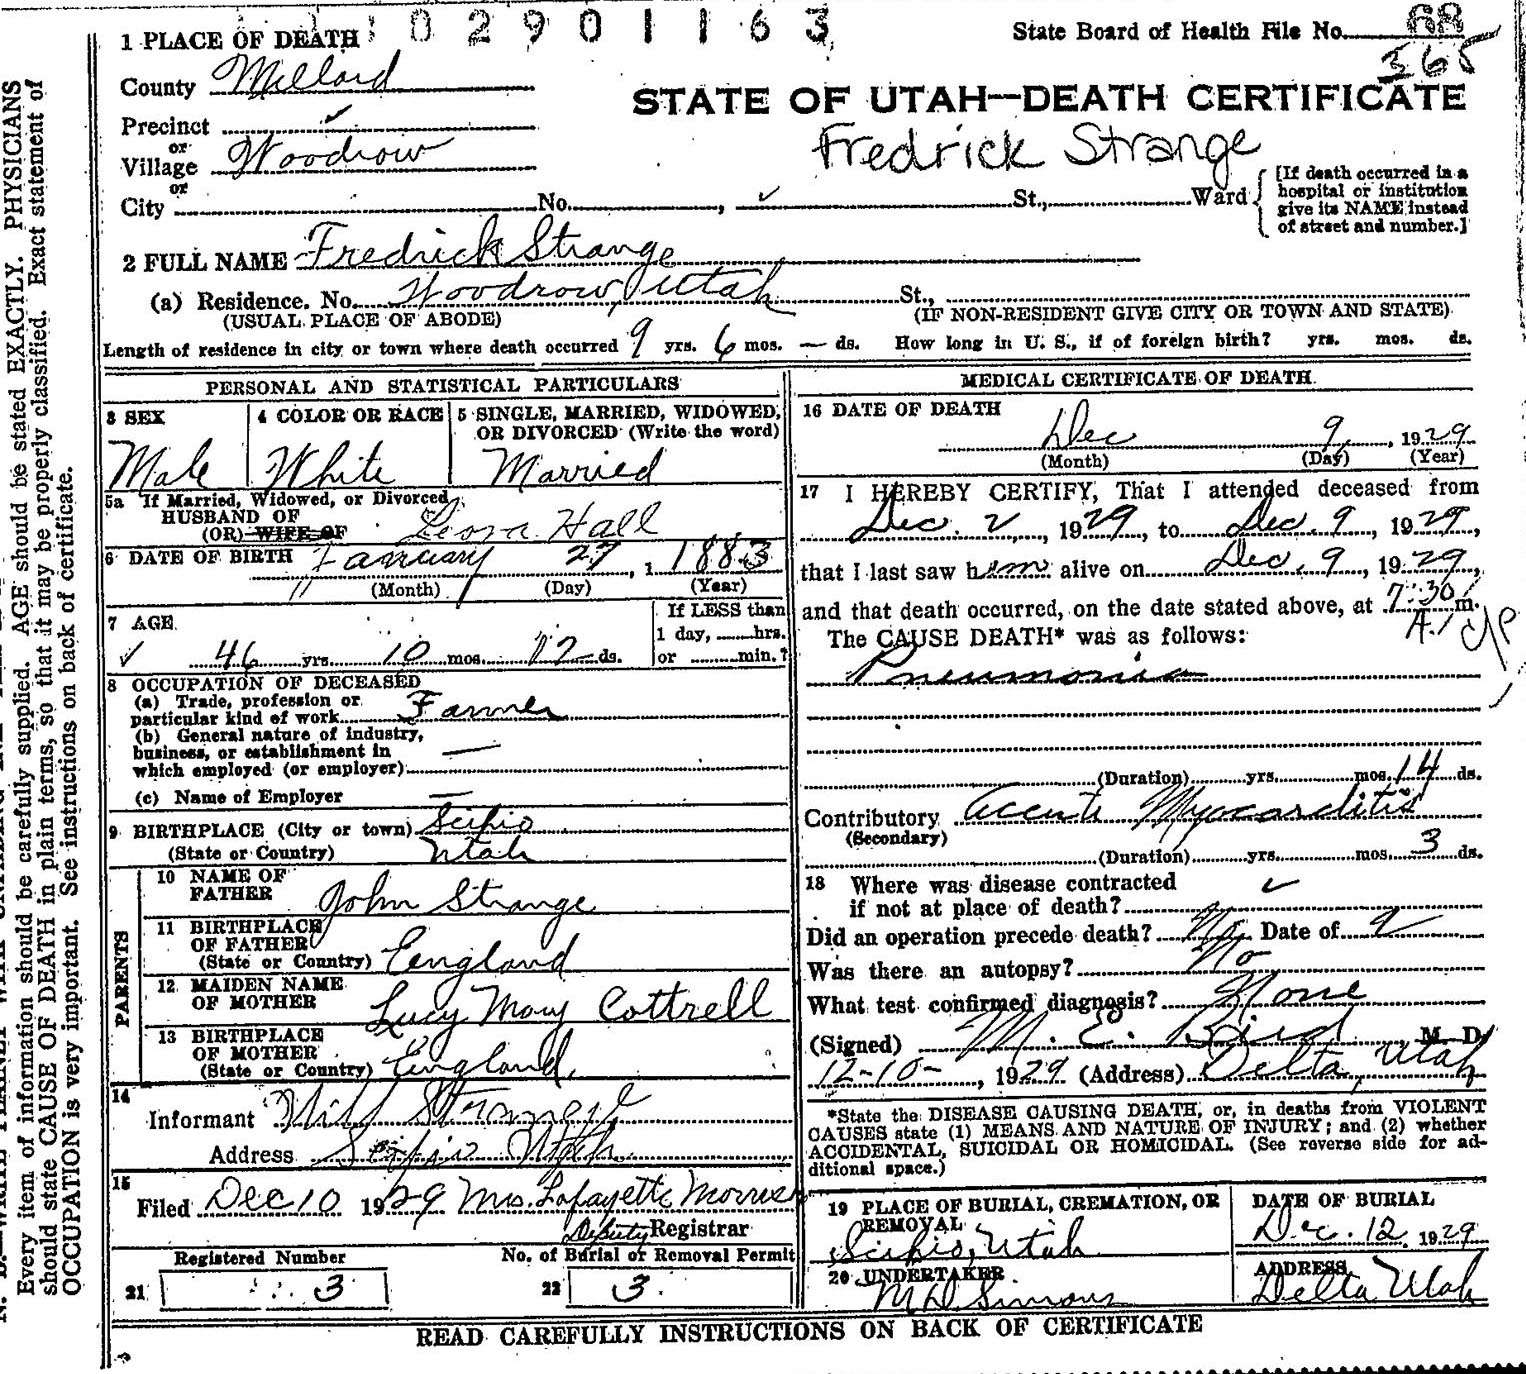 1 PLACE OF DEATH 1 0 2 9 0 1 1 6 3
State Board of Health File No. 68
365
County Millard
STATE OF UTAH—DEATH CERTIFICATE
Precinct ✓
Fredrick Strange
or
Village Woodrow
or
City No. , ✓ St., Ward
[If death occurred in a
hospital or institution
give its NAME instead
of street and number.]
2 FULL NAME Fredrick Strange
(a) Residence. No. Woodrow, Utah St.,
(USUAL PLACE OF ABODE) (IF NON-RESIDENT GIVE CITY OR TOWN AND STATE)
Length of residence in city or town where death occurred 9 yrs. 6 mos. — ds. How long in U. S., if of foreign birth? yrs. mos. ds.
PERSONAL AND STATISTICAL PARTICULARS
3 SEX
Male
4 COLOR OR RACE
White
5 SINGLE, MARRIED, WIDOWED,
OR DIVORCED (Write the word)
Married
5a If Married, Widowed, or Divorced
HUSBAND OF
(OR) WIFE OF Leora Hall
6 DATE OF BIRTH January 27, 1 1883
(Month) (Day) (Year)
7 AGE
✓ 46 yrs 10 mos 12 ds.
If LESS than
1 day, hrs.
or min.?
8 OCCUPATION OF DECEASED
(a) Trade, profession or
particular kind of work Farmer
(b) General nature of industry,
business, or establishment in —
which employed (or employer)
(c) Name of Employer —
9 BIRTHPLACE (City or town) Scipio
(State or Country) Utah
PARENTS
10 NAME OF
FATHER John Strange
11 BIRTHPLACE
OF FATHER
(State or Country) England
12 MAIDEN NAME
OF MOTHER Lucy Mary Cottrell
13 BIRTHPLACE
OF MOTHER
(State or Country) England,
14
Informant Will Strange
Address Scipio Utah
15
Filed Dec 10 1929 Mrs. Lafayette Morris
Deputy Registrar
Registered Number
21 3
No. of Burial or Removal Permit
22 3.
MEDICAL CERTIFICATE OF DEATH
16 DATE OF DEATH
Dec 9, 1929
(Month) (Day) (Year)
17 I HEREBY CERTIFY, That I attended deceased from
Dec. 2, 1929, to Dec. 9, 1929,
that I last saw him alive on Dec. 9, 1929,
and that death occurred, on the date stated above, at 7:30 m.
A.
The CAUSE DEATH* was as follows:
Pneumonia
(Duration) yrs. mos. 14 ds.
Contributory Accute Myocarditis
(Secondary)
(Duration) yrs. mos. 3 ds.
18 Where was disease contracted ✓
if not at place of death?
Did an operation precede death? No. Date of
Was there an autopsy? No
What test confirmed diagnosis? None
(Signed) M. E. Bird M. D.
12-10-, 1929 (Address) Delta, Utah
*State the DISEASE CAUSING DEATH, or, in deaths from VIOLENT
CAUSES state (1) MEANS AND NATURE OF INJURY; and (2) whether
ACCIDENTAL, SUICIDAL OR HOMICIDAL. (See reverse side for ad-
ditional space.)
19 PLACE OF BURIAL, CREMATION, OR
REMOVAL
Scipio, Utah
DATE OF BURIAL
Dec. 12, 1929
20 UNDERTAKER
M D Simons
ADDRESS
Delta Utah
READ CAREFULLY INSTRUCTIONS ON BACK OF CERTIFICATE
Every item of information should be carefully supplied. AGE should be stated EXACTLY. PHYSICIANS
should state CAUSE OF DEATH in plain terms, so that it may be properly classified. Exact statement of
OCCUPATION is very important. See instructions on back of certificate.